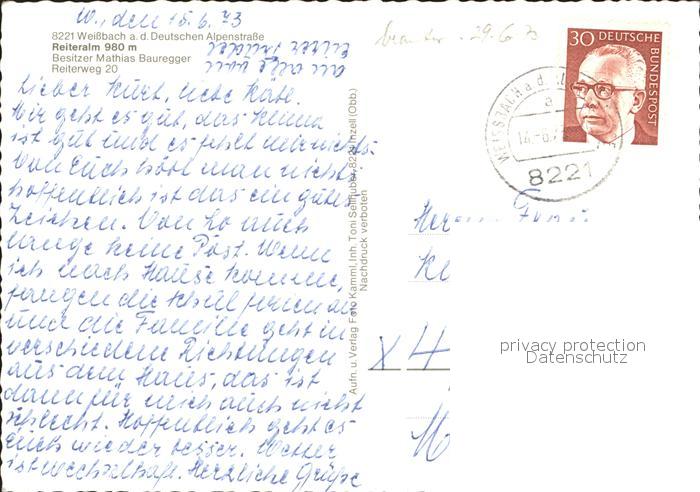 W., den 15.6.73
8221 Weißbach a. d. Deutschen Alpenstraße
Reiteralm 980 m
Besitzer Mathias Bauregger
Reiterweg 20
an alle von
Eurer Trudel
Lieber Kurt, liebe Käte.
Mir geht es gut, das Klima
ist gut und es fehlt mir nichts.
Von Euch hört man nichts.
hoffentlich ist das ein gutes
Zeichen. Von Lo auch
lange keine Post. Wenn
ich nach Hause komme,
fangen die Schulferien an
und die Familie geht in
verschiedene Richtungen
aus dem Haus, das ist
dann für mich auch nicht
schlecht. Hoffentlich geht es
Euch wieder besser. Wetter
ist wechselhaft. Herzliche Grüße
Aufn. u. Verlag Foto Kamml, Inh. Toni Sellhuber, 8221 Inzell (Obb.)
Nachdruck verboten
29.6.73
30 DEUTSCHE
BUNDESPOST
WEISSBACH a. d.
a
8221
Herrn
X 4
privacy protection
Datenschutz